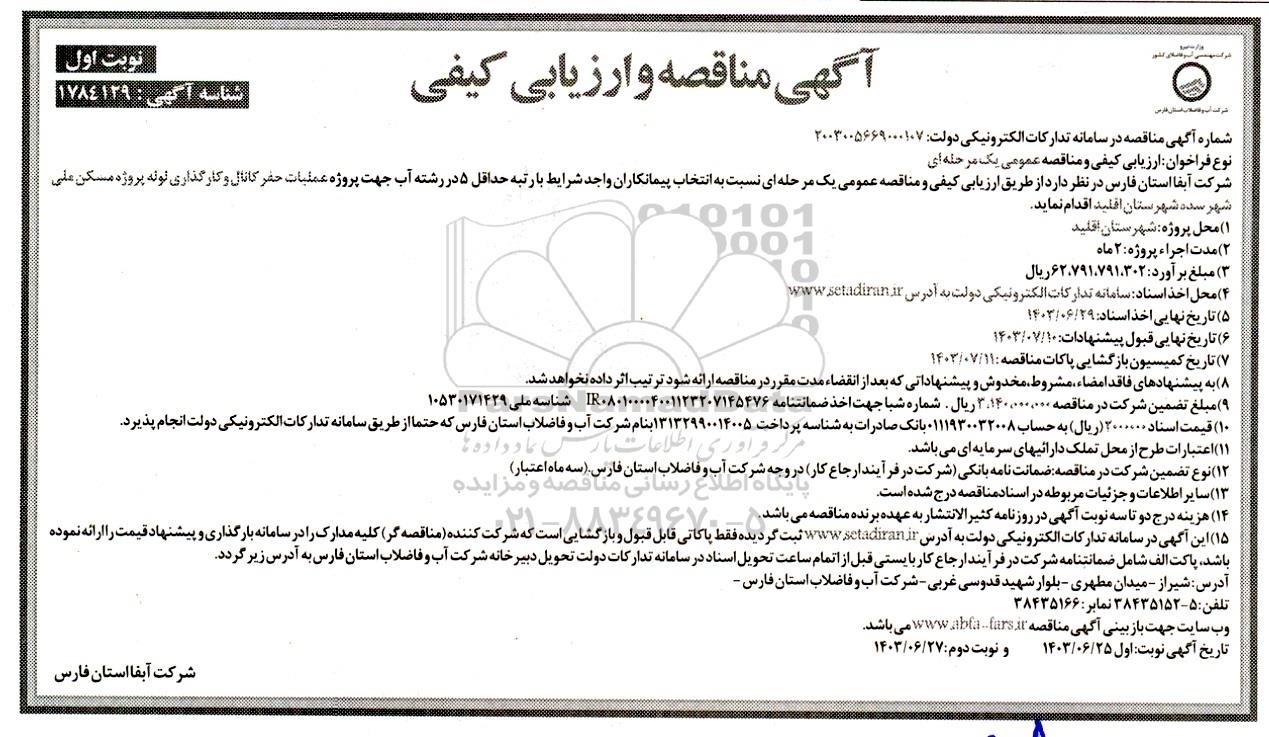 وزارت نیرو
شرکت مهندسی آب و فاضلاب کشور
شرکت آب و فاضلاب استان فارس
آگهی مناقصه و ارزیابی کیفی
نوبت اول
شناسه آگهی : ۱۷۸٤۱۲۹
شماره آگهی مناقصه در سامانه تدارکات الکترونیکی دولت: ۲۰۰۳۰۰۵۶۶۹۰۰۰۱۰۷
نوع فراخوان: ارزیابی کیفی و مناقصه عمومی یک مرحله ای
شرکت آبفا استان فارس در نظر دارد از طریق ارزیابی کیفی و مناقصه عمومی یک مرحله ای نسبت به انتخاب پیمانکاران واجد شرایط با رتبه حداقل ۵ در رشته آب جهت پروژه عملیات حفر کانال و کارگذاری لوله پروژه مسکن ملی
شهر سده شهرستان اقلید اقدام نماید.
۱) محل پروژه: شهرستان اقلید
۲) مدت اجراء پروژه: ۲ ماه
۳) مبلغ برآورد: ۶۲،۷۹۱،۷۹۱،۳۰۲ ریال
۴) محل اخذ اسناد: سامانه تدارکات الکترونیکی دولت به آدرس www.setadiran.ir
۵) تاریخ نهایی اخذ اسناد: ۱۴۰۳/۰۶/۲۹
۶) تاریخ نهایی قبول پیشنهادات: ۱۴۰۳/۰۷/۱۰
۷) تاریخ کمیسیون بازگشایی پاکات مناقصه : ۱۴۰۳/۰۷/۱۱
۸) به پیشنهادهای فاقد امضاء، مشروط، مخدوش و پیشنهاداتی که بعد از انقضاء مدت مقرر در مناقصه ارائه شود ترتیب اثر داده نخواهد شد.
۹) مبلغ تضمین شرکت در مناقصه ۳،۱۴۰،۰۰۰،۰۰۰ ریال . شماره شبا جهت اخذ ضمانتنامه IR۰۸۰۱۰۰۰۰۴۰۰۱۱۲۳۲۰۷۱۴۵۴۷۶ شناسه ملی ۱۰۵۳۰۱۷۱۴۲۹
۱۰) قیمت اسناد ۲۰۰۰۰۰۰ (ریال) به حساب ۰۱۱۱۹۳۰۰۳۲۰۰۸ بانک صادرات به شناسه پرداخت ۱۳۱۳۲۹۹۰۰۱۴۰۰۵ بنام شرکت آب و فاضلاب استان فارس که حتما از طریق سامانه تدارکات الکترونیکی دولت انجام پذیرد.
۱۱) اعتبارات طرح از محل تملک دارائیهای سرمایه ای می باشد.
۱۲) نوع تضمین شرکت در مناقصه: ضمانت نامه بانکی (شرکت در فرآیند ارجاع کار) در وجه شرکت آب و فاضلاب استان فارس. (سه ماه اعتبار)
۱۳) سایر اطلاعات و جزئیات مربوطه در اسناد مناقصه درج شده است.
۱۴) هزینه درج دو تا سه نوبت آگهی در روزنامه کثیرالانتشار به عهده برنده مناقصه می باشد.
۱۵) این آگهی در سامانه تدارکات الکترونیکی دولت به آدرس www.setadiran.ir ثبت گردیده فقط پاکاتی قابل قبول و بازگشایی است که شرکت کننده (مناقصه گر) کلیه مدارک را در سامانه بارگذاری و پیشنهاد قیمت را ارائه نموده
باشد، پاکت الف شامل ضمانتنامه شرکت در فرآیند ارجاع کار بایستی قبل از اتمام ساعت تحویل اسناد در سامانه تدارکات دولت تحویل دبیرخانه شرکت آب و فاضلاب استان فارس به آدرس زیر گردد.
آدرس: شیراز - میدان مطهری - بلوار شهید قدوسی غربی - شرکت آب و فاضلاب استان فارس -
تلفن: ۵-۳۸۴۳۵۱۵۲ نمابر: ۳۸۴۳۵۱۶۶
وب سایت جهت بازبینی آگهی مناقصه www.abfa-fars.ir می باشد.
تاریخ آگهی نوبت: اول ۱۴۰۳/۰۶/۲۵ و نوبت دوم: ۱۴۰۳/۰۶/۲۷
شرکت آبفا استان فارس
ParsNamadData
مرکز فرآوری اطلاعات پارس نماد داده ها
پایگاه اطلاع رسانی مناقصه و مزایده
۰۲۱-۸۸۳۴۹۶۷۰-۵